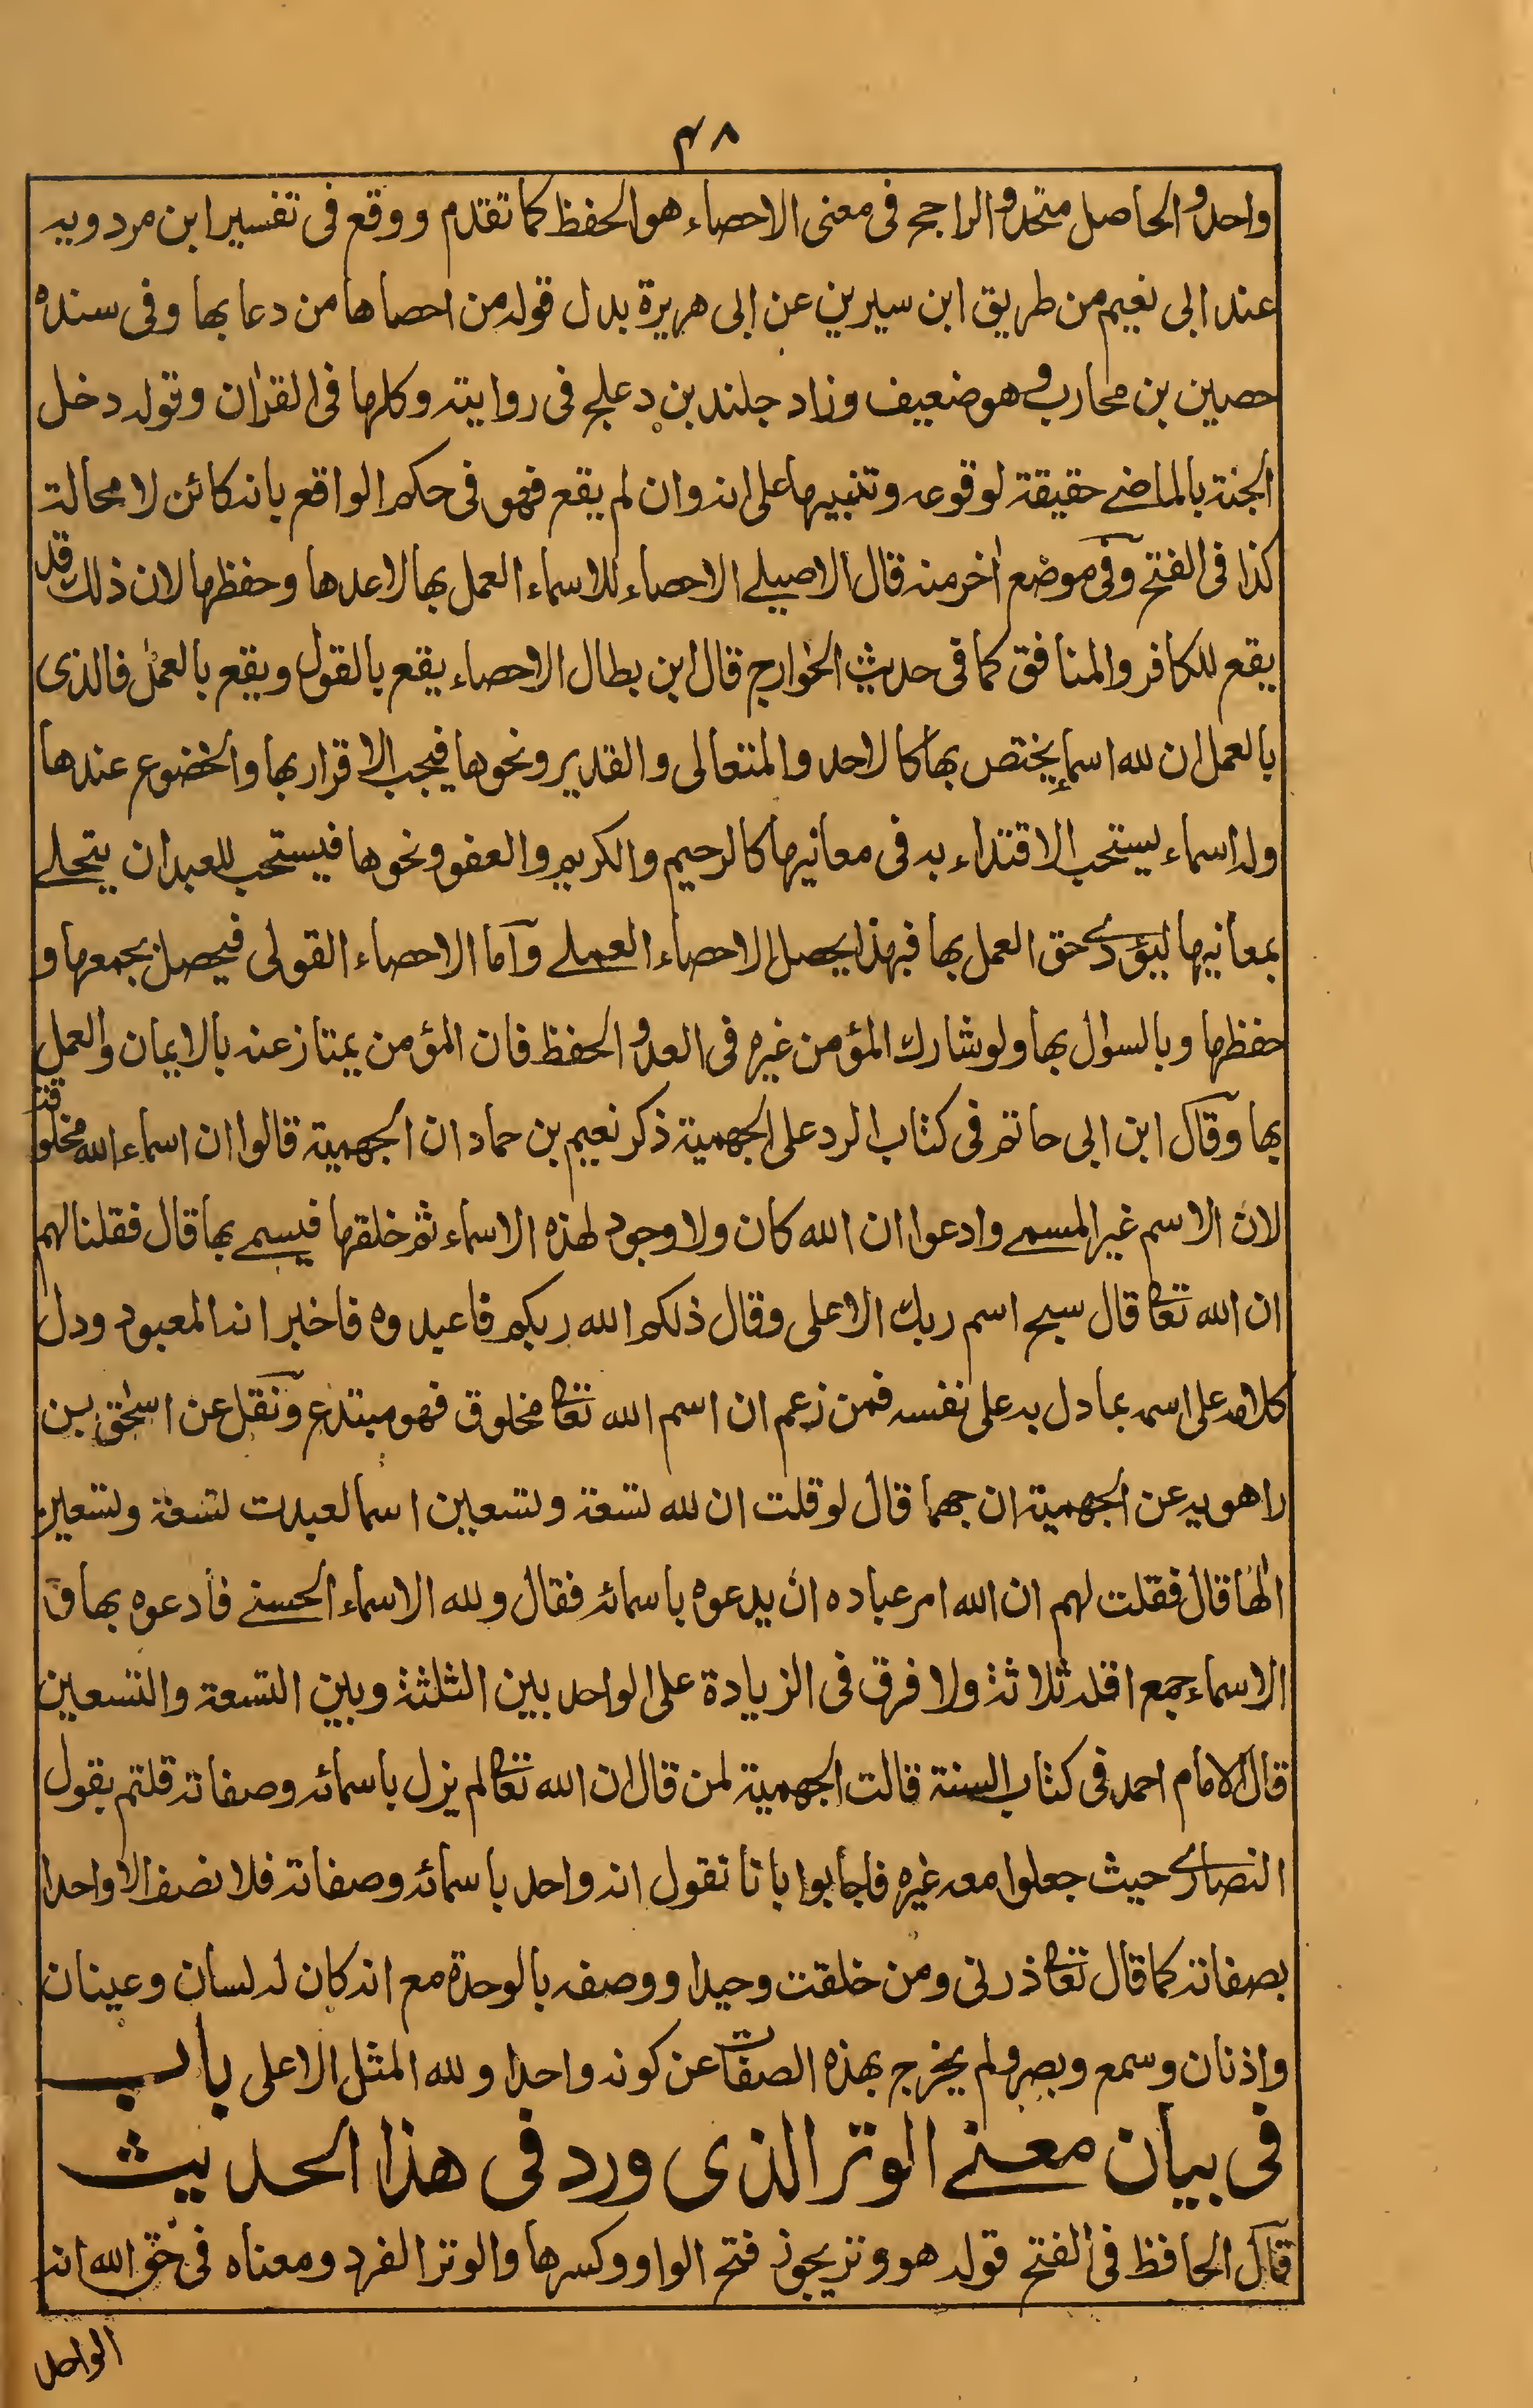 ۴۸
واحد والحاصل متحد والراجح فى معنى الاحصاء هو الحفظ كما تقدم ووقع فى تفسير ابن مردويه
عند ابى نعيم من طريق ابن سيرين عن ابى هريرة بدل قوله من احصاها من دعا بها وفى سنده
حصين بن محارب وهو ضعيف وزاد جلند بن دعلج فى روايته وكلها فى القرآن وقوله دخل
الجنة بالماضے حقيقة لوقوعه وتنبيها على انه وان لم يقع فهو فى حكم الواقع بانه كائن لا محالة
كذا فى الفتح وفى موضع اٰخر منه قال الاصيلے الاحصاء للاسماء العمل بها لا عدها وحفظها لان ذلك قد
يقع للكافر والمنافق كما فى حديث الخوارج قال ابن بطال الاحصاء يقع بالقول ويقع بالعمل فالذى
بالعمل ان لله اسماء يختص بها كالاحد والمتعالى والقدير ونحوها فيجب الاقرار بها والخضوع عندها
وله اسماء يستحب الاقتداء به فى معانيها كالرحيم والكريم والعفو ونحوها فيستحب للعبد ان يتحلے
بمعانيها ليؤدے حق العمل بها فبهذا يحصل الاحصاء العملے وآما الاحصاء القولى فيحصل بجمعها و
حفظها وبالسوال بها ولو شارك المؤمن غيره فى العد والحفظ فان المؤمن يمتاز عنه بالايمان والعمل
بها وقال ابن ابى حاتم فى كتاب الرد على الجهمية ذكر نعيم بن حماد ان الجهمية قالوا ان اسماء الله مخلوقة
لان الاسم غير المسمے وادعوا ان الله كان ولا وجود لهذه الاسماء ثم خلقها فيسمے بها قال فقلنا لهم
ان الله تعالى قال سبح اسم ربك الاعلى وقال ذلكم الله ربكم فاعبدوه فاخبر انه المعبود ودل
كلامه على اسمه بما دل به على نفسه فمن زعم ان اسم الله تعالى مخلوق فهو مبتدع ونقل عن اسحٰق بن
راهويه عن الجهمية ان جهما قال لو قلت ان لله تسعة وتسعين اسما لعبدت تسعة وتسعين
الٰها قال فقلت لهم ان الله امر عباده ان يدعوه باسمائه فقال ولله الاسماء الحسنے فادعوه بها و
الاسماء جمع اقله ثلاثة ولا فرق فى الزيادة على الواحد بين الثلثة وبين التسعة والتسعين
قال الامام احمد فى كتاب السنة قالت الجهمية لمن قال ان الله تعالى لم يزل باسمائه وصفاته قلتم بقول
النصارے حيث جعلوا معه غيره فاجابوا بانا نقول انه واحد باسمائه وصفاته فلا نصف الا واحدا
بصفاته كما قال تعالى ذرنى ومن خلقت وحيدا ووصفه بالوحدة مع انه كان له لسان وعينان
واذنان وسمع وبصر ولم يخرج بهذه الصفات عن كونه واحدا ولله المثل الاعلى باب
فى بيان معنے الوتر الذى ورد فى هذا الحديث
قال الحافظ فى الفتح قوله هو وتر يجوز فتح الواو وكسرها والوتر الفرد ومعناه فى حق الله انه
الواحد